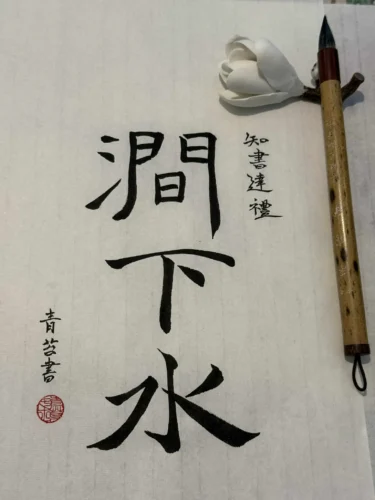 知書達禮
澗下水
青苔書